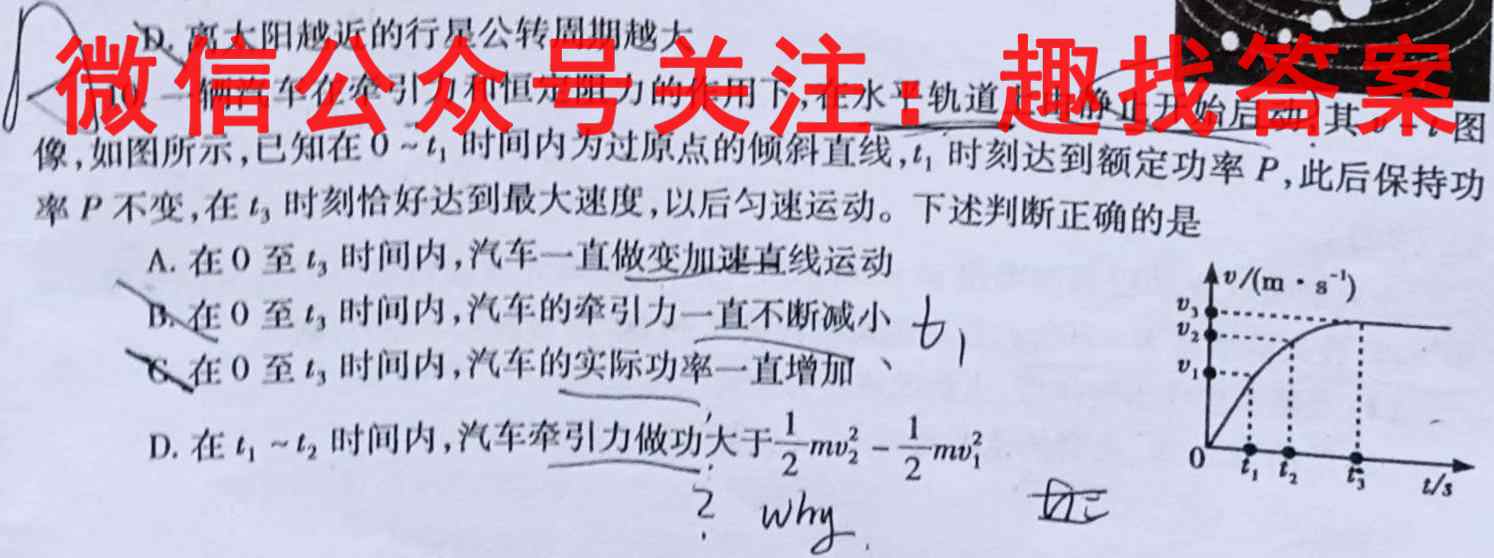 D. 离太阳越近的行星公转周期越大
微信公众号关注：趣找答案
10. 一辆汽车在牵引力和恒定阻力的作用下,在水平轨道上由静止开始启动,其 v-t 图
像,如图所示,已知在 0 ~ t₁ 时间内为过原点的倾斜直线,t₁ 时刻达到额定功率 P,此后保持功
率 P 不变,在 t₃ 时刻恰好达到最大速度,以后匀速运动。下述判断正确的是
A. 在 0 至 t₃ 时间内,汽车一直做变加速直线运动
B. 在 0 至 t₃ 时间内,汽车的牵引力一直不断减小 t₁
C. 在 0 至 t₃ 时间内,汽车的实际功率一直增加
D. 在 t₁ ~ t₂ 时间内,汽车牵引力做功大于 1/2 mv₂² - 1/2 mv₁²
? why
v/(m·s⁻¹)
v₃
v₂
v₁
0 t₁ t₂ t₃ t/s